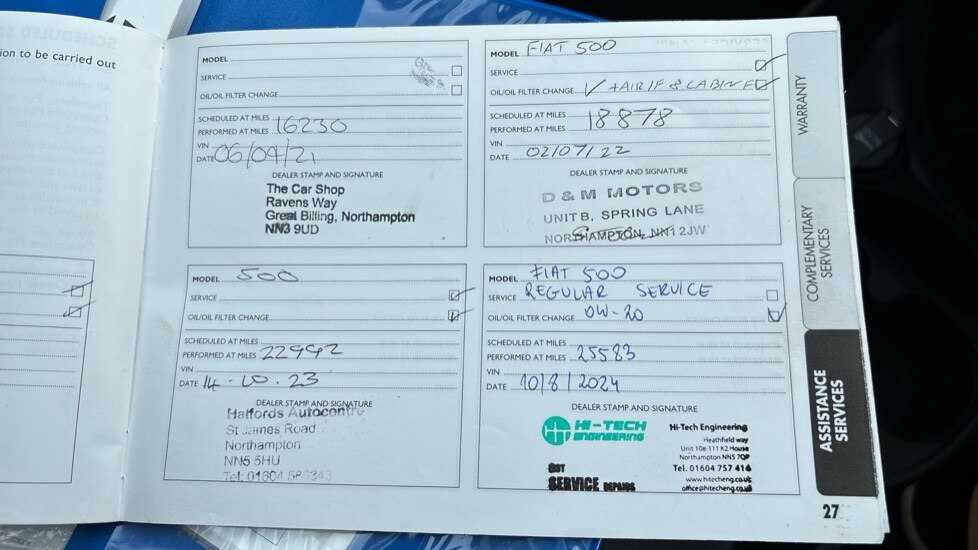 ion to be carried out
MODEL
SERVICE
OIL/OIL FILTER CHANGE
SCHEDULED AT MILES
PERFORMED AT MILES 16230
VIN
DATE 06/09/21
DEALER STAMP AND SIGNATURE
The Car Shop
Ravens Way
Great Billing, Northampton
NN3 9UD
MODEL FIAT 500
SERVICE
OIL/OIL FILTER CHANGE ✓ + AIR/F & CABIN F
SCHEDULED AT MILES
PERFORMED AT MILES 18878
VIN
DATE 02/07/22
DEALER STAMP AND SIGNATURE
D & M MOTORS
UNIT B, SPRING LANE
NORTHAMPTON, NN1 2JW
MODEL 500
SERVICE
OIL/OIL FILTER CHANGE
SCHEDULED AT MILES
PERFORMED AT MILES 22992
VIN
DATE 14.10.23
DEALER STAMP AND SIGNATURE
Halfords Autocentre
St James Road
Northampton
NN5 5HU
Tel: 01604
MODEL FIAT 500
SERVICE REGULAR SERVICE
OIL/OIL FILTER CHANGE 0W-20
SCHEDULED AT MILES
PERFORMED AT MILES 25583
VIN
DATE 10/8/2024
DEALER STAMP AND SIGNATURE
HI-TECH
ENGINEERING
SERVICE REPAIRS
Hi-Tech Engineering
Heathfield way
Unit 10e-111 K2 House
Northampton NN5 7QP
Tel. 01604 757 414
www.hitecheng.co.uk
office@hitecheng.co.uk
WARRANTY
COMPLEMENTARY
SERVICES
ASSISTANCE
SERVICES
27